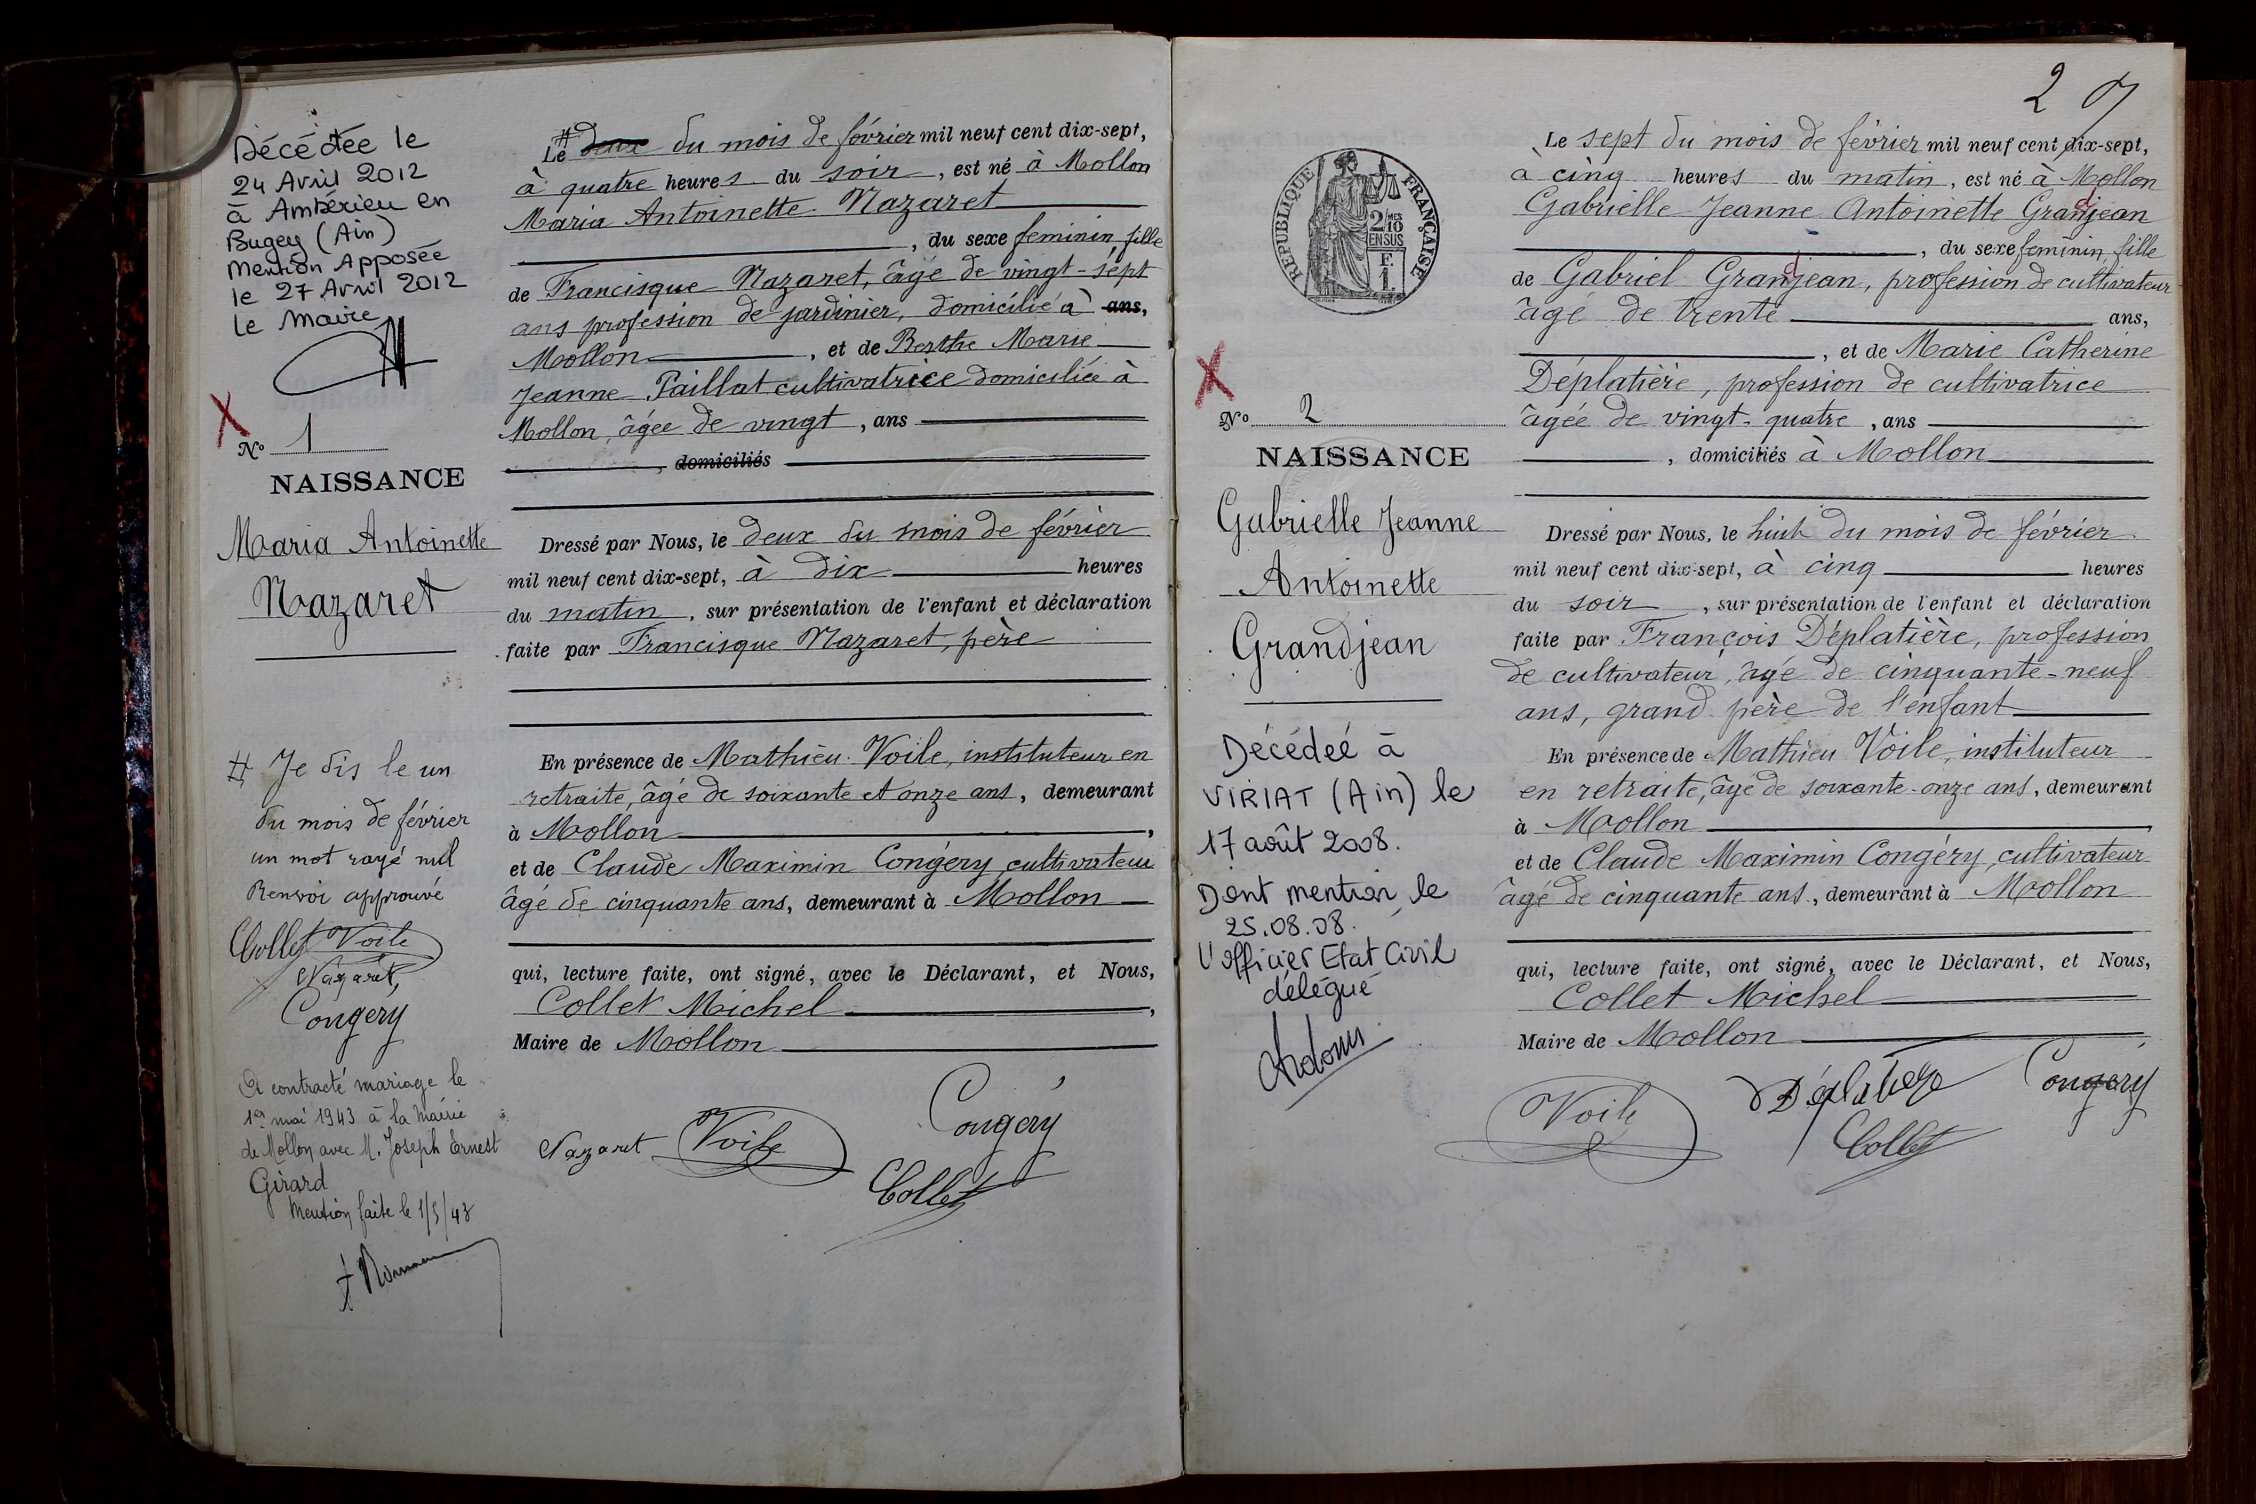 Décédée le
24 Avril 2012
à Ambérieu en
Bugey (Ain)
Mention Apposée
le 27 Avril 2012
le Maire
N° 1
NAISSANCE
Maria Antoinette
Nazaret
# Je dis le un
du mois de février
un mot rayé nul
Renvoi approuvé
Collet Voile
Nazaret
Congery
A contracté mariage le
1er mai 1943 à la Mairie
de Mollon avec M. Joseph Ernest
Girard
Mention faite le 1/5/43
# Le deux du mois de février mil neuf cent dix-sept,
à quatre heures du soir, est né à Mollon
Maria Antoinette Nazaret
, du sexe feminin, fille
de Francisque Nazaret, âgé de vingt-sept
ans profession de jardinier, domicilié à ans,
Mollon, et de Berthe Marie
Jeanne Paillat cultivatrice domiciliée à
Mollon, âgée de vingt, ans
, domiciliés
Dressé par Nous, le deux du mois de février
mil neuf cent dix-sept, à dix heures
du matin, sur présentation de l'enfant et déclaration
faite par Francisque Nazaret, père
En présence de Mathieu Voile, instituteur en
retraite, âgé de soixante et onze ans, demeurant
à Mollon,
et de Claude Maximin Congéry, cultivateur
âgé de cinquante ans, demeurant à Mollon
qui, lecture faite, ont signé, avec le Déclarant, et Nous,
Collet Michel,
Maire de Mollon
Nazaret Voile Congery
Collet
2
RÉPUBLIQUE FRANÇAISE
2/10 MES
EN SUS
F.
1.
N° 2
NAISSANCE
Gabrielle Jeanne
Antoinette
Grandjean
Décédeé à
VIRIAT (Ain) le
17 août 2008.
Dont mention le
25.08.08.
L'officier Etat Civil
délégué
Le sept du mois de février mil neuf cent dix-sept,
à cinq heures du matin, est né à Mollon
Gabrielle Jeanne Antoinette Grandjean
, du sexe feminin, fille
de Gabriel Grandjean, profession de cultivateur
âgé de trente ans,
, et de Marie Catherine
Déplatière, profession de cultivatrice
âgée de vingt-quatre, ans
, domiciliés à Mollon
Dressé par Nous, le huit du mois de février
mil neuf cent dix-sept, à cinq heures
du soir, sur présentation de l'enfant et déclaration
faite par François Déplatière, profession
de cultivateur, âgé de cinquante-neuf
ans, grand père de l'enfant
En présence de Mathieu Voile, instituteur
en retraite, âgé de soixante-onze ans, demeurant
à Mollon,
et de Claude Maximin Congéry, cultivateur
âgé de cinquante ans, demeurant à Mollon
qui, lecture faite, ont signé, avec le Déclarant, et Nous,
Collet Michel
Maire de Mollon
Voile Congery
Collet